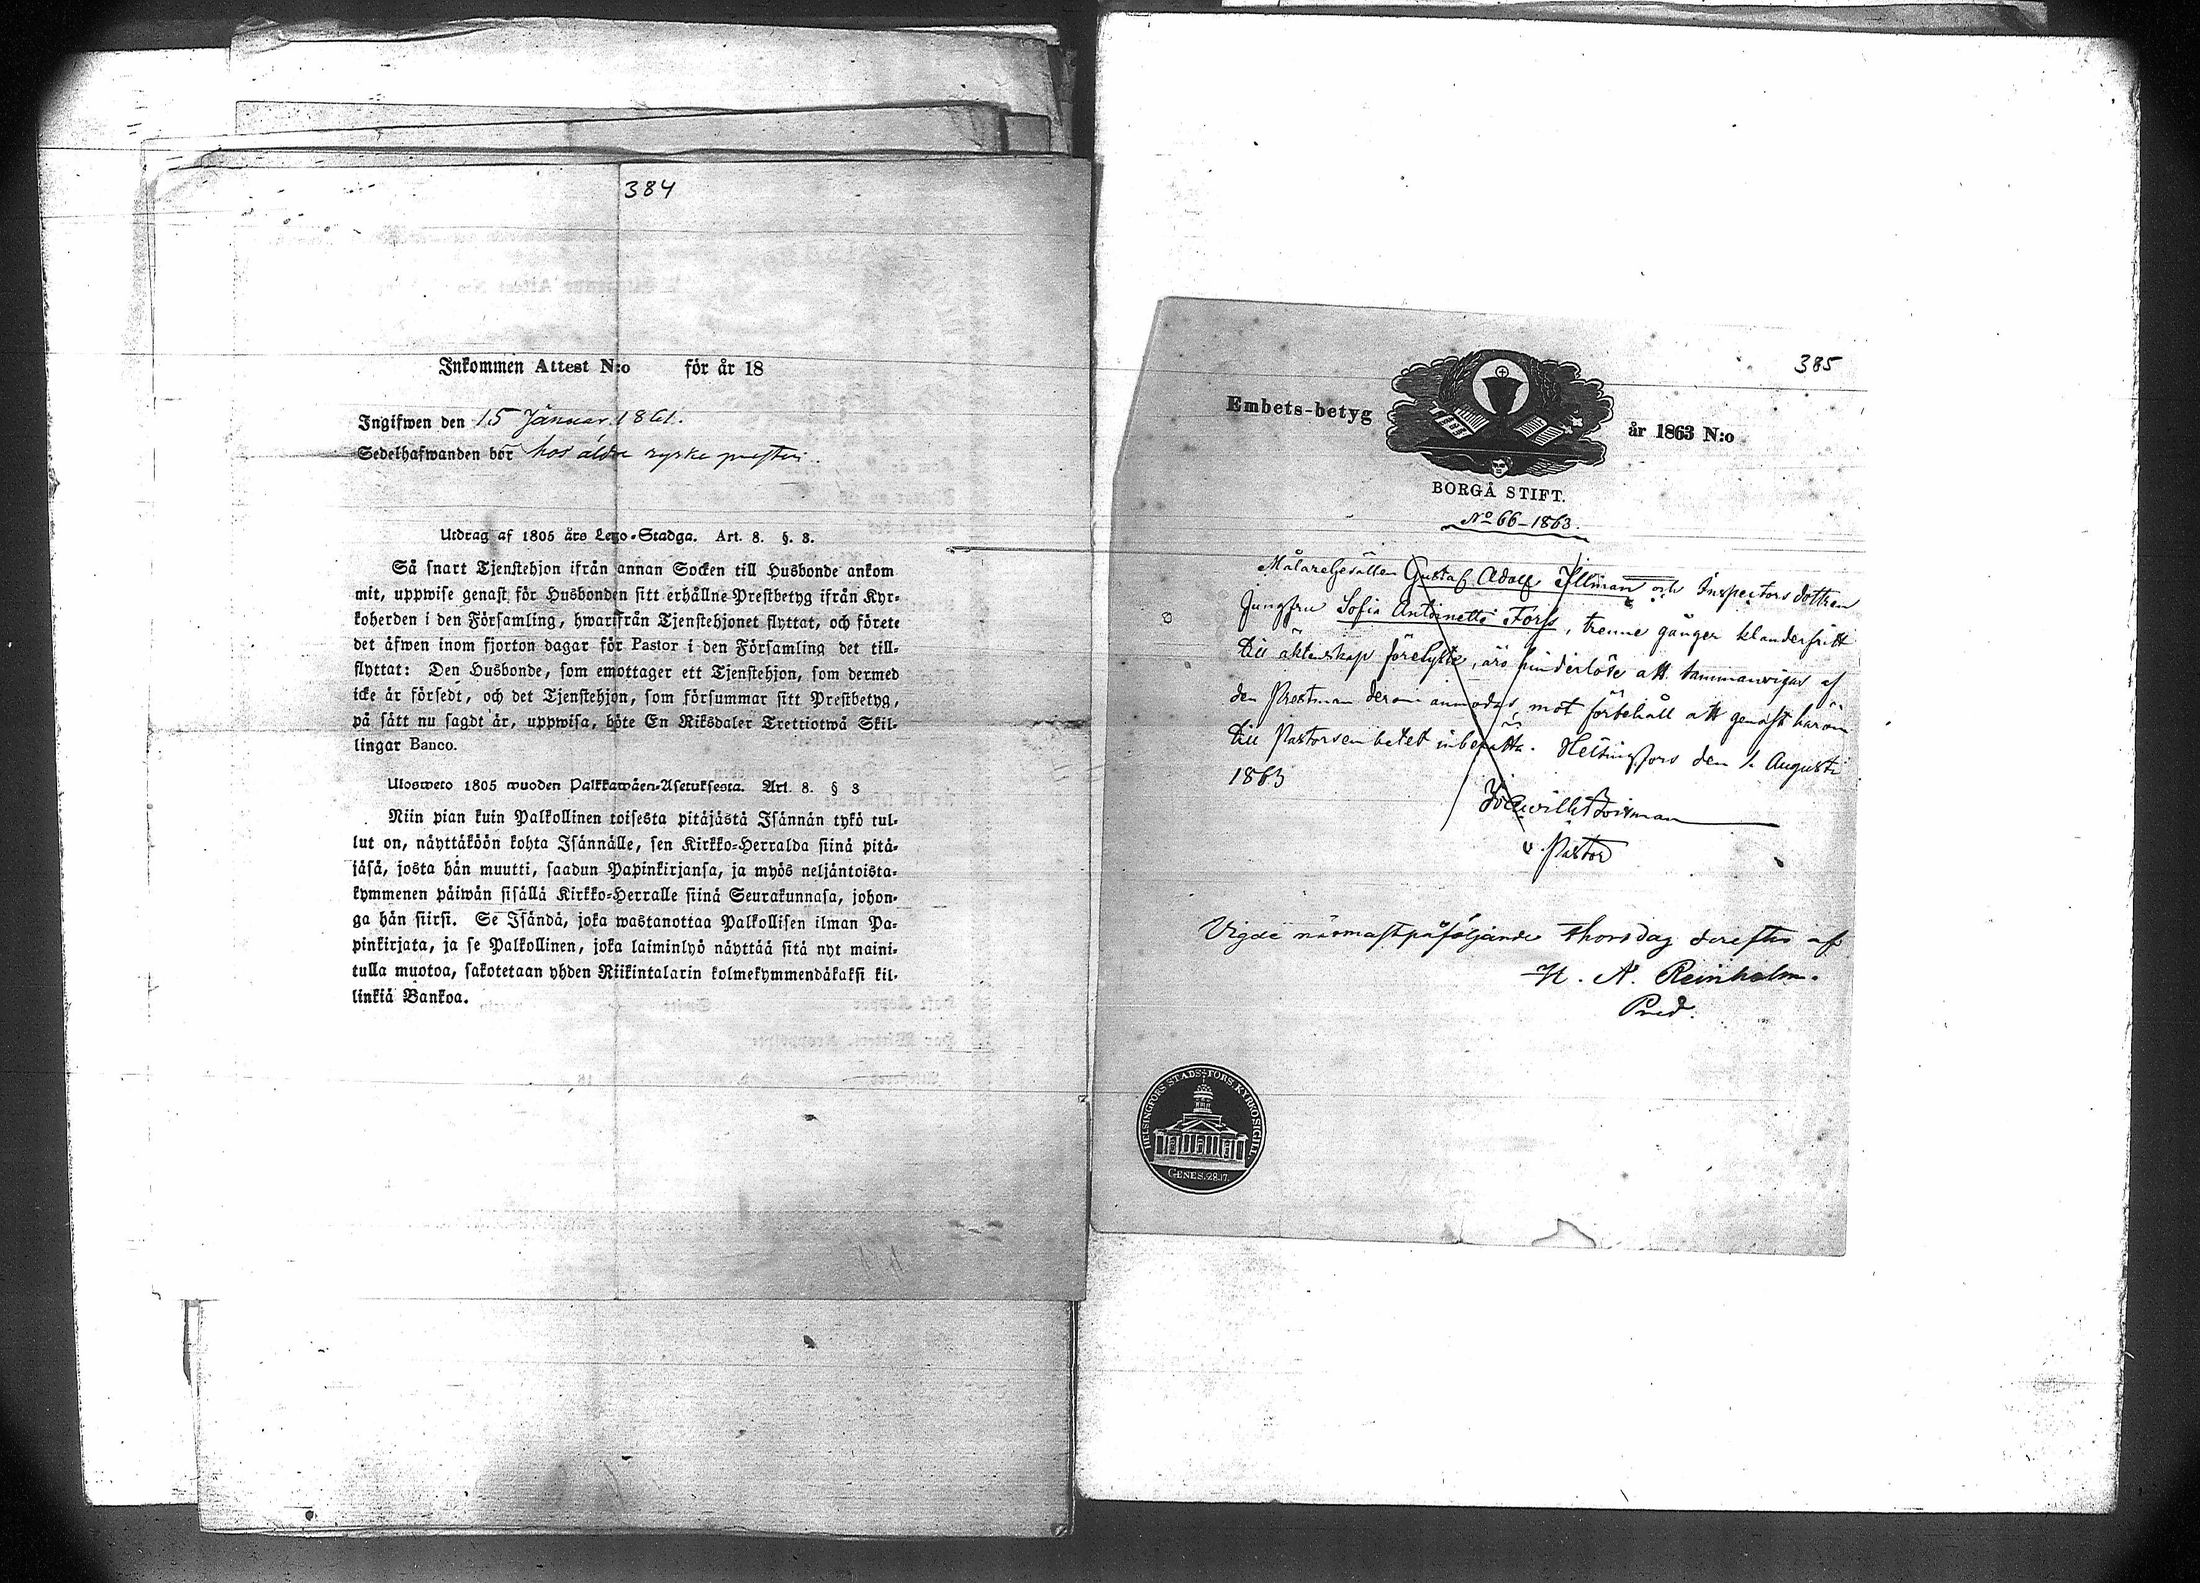 384
Inkommen Attest N:o för år 18
Ingifwen den 15 Januar. 1861.
Sedelhafwanden bor hos äldre ryske presten.
Utdrag af 1805 års Lego-Stadga. Art. 8. §. 3.
Så snart Tjenstehjon ifrån annan Socken till Husbonde ankom
mit, uppwise genast för Husbonden sitt erhållne Prestbetyg ifrån Kyr-
koherden i den Församling, hwarifrån Tjenstehjonet flyttat, och förete
det äfwen inom fjorton dagar för Pastor i den Församling det till-
flyttat: Den Husbonde, som emottager ett Tjenstehjon, som dermed
icke är försedt, och det Tjenstehjon, som försummar sitt Prestbetyg,
på sätt nu sagdt är, uppwisa, böte En Riksdaler Trettiotwå Skil-
lingar Banco.
Ulosweto 1805 wuoden Palkkawäen-Asetuksesta. Art. 8. § 3
Niin pian kuin Palkollinen toisesta pitäjästä Isännän tykö tul-
lut on, näyttäköön kohta Isännälle, sen Kirkko-Herralda siinä pitä-
jäsä, josta hän muutti, saadun Papinkirjansa, ja myös neljäntoista-
kymmenen päiwän sisällä Kirkko-Herralle siinä Seurakunnasa, johon-
ga hän siirsi. Se Isändä, joka wastanottaa Palkollisen ilman Pa-
pinkirjata, ja se Palkollinen, joka laiminlyö näyttää sitä nyt maini-
tulla muotoa, sakotetaan yhden Riikintalarin kolmekymmendäkaksi kil-
linkiä Bankoa.
385
Embets-betyg år 1863 N:o
BORGÅ STIFT.
No 66-1863.
Målaregesällen Gustaf Adolf Illman och Inspectorsdottren
Jungfru Sofia Antoinette Forss, trenne gånger klanderfritt
till äktenskap förelyste, äro hinderlöse att sammanvigas af
den Prestman derom anmodas, mot förbehåll att genast härom
till Pastorsembetet inberätta. Helsingfors den 1. Augusti
1863
v. Pastor
Vigde närmast påföljande Thorsdag derefter af
H. A. Reinholm.
Pred.
HELSINGFORS STADS-FÖRS. KYRKOSIGILL.
GENES. 28.17.